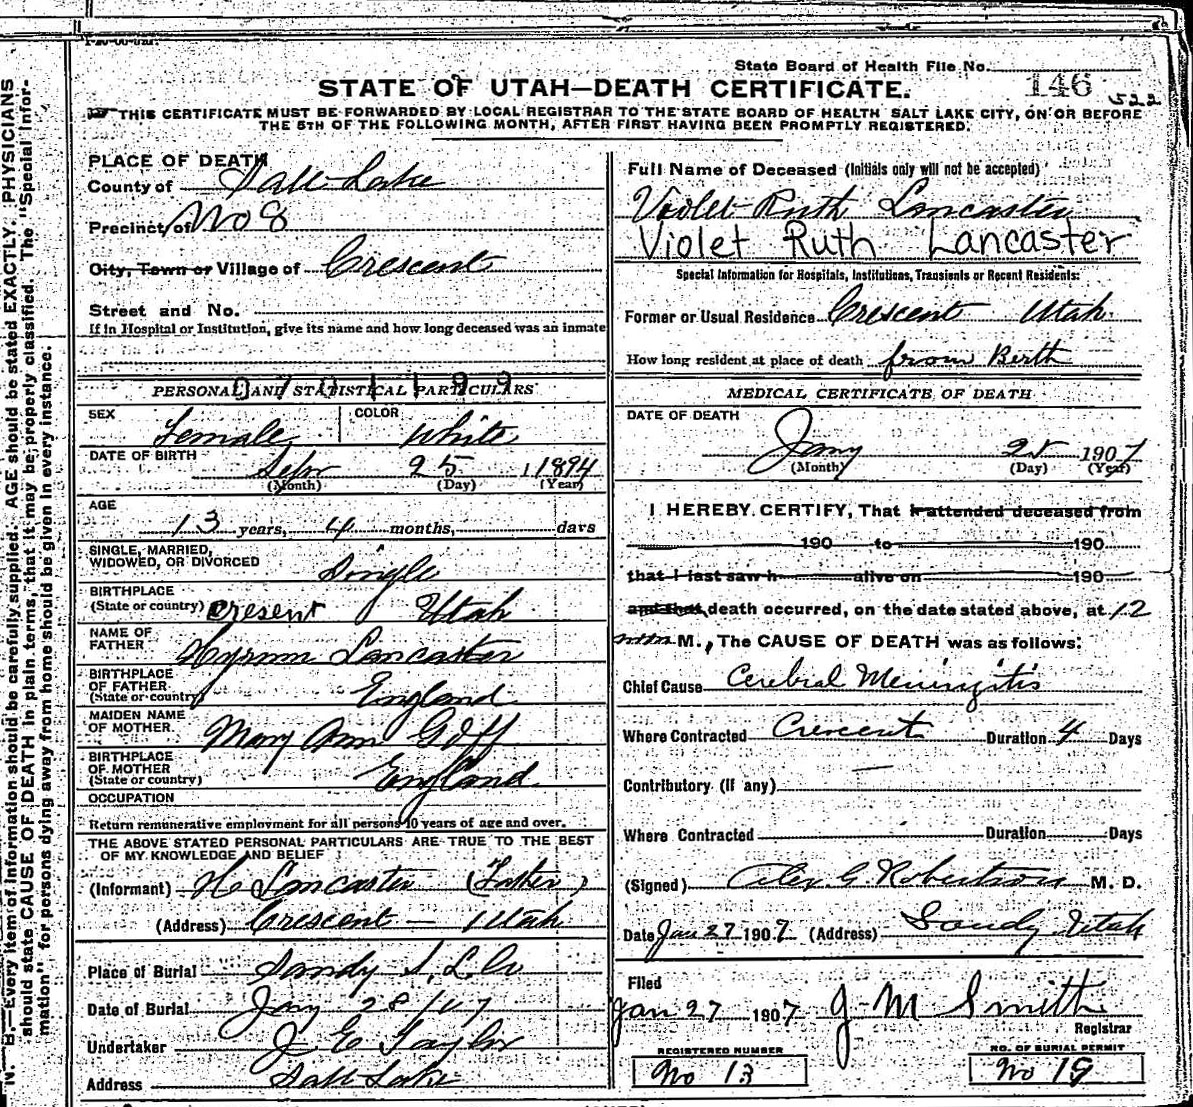 N. B.—Every item of information should be carefully supplied. AGE should be stated EXACTLY. PHYSICIANS
should state CAUSE OF DEATH in plain terms, that it may be properly classified. The "Special Infor-
mation" for persons dying away from home should be given in every instance.
State Board of Health File No. 146
522
STATE OF UTAH—DEATH CERTIFICATE.
THIS CERTIFICATE MUST BE FORWARDED BY LOCAL REGISTRAR TO THE STATE BOARD OF HEALTH SALT LAKE CITY, ON OR BEFORE
THE 5TH OF THE FOLLOWING MONTH, AFTER FIRST HAVING BEEN PROMPTLY REGISTERED.
PLACE OF DEATH
County of Salt Lake
Precinct of No 8
City, Town or Village of Crescent
Street and No.
If in Hospital or Institution, give its name and how long deceased was an inmate
PERSONAL AND STATISTICAL PARTICULARS
SEX Female COLOR White
DATE OF BIRTH 25 1894
(Month) (Day) (Year)
AGE
13 years, 4 months, days
SINGLE, MARRIED,
WIDOWED, OR DIVORCED Single
BIRTHPLACE
(State or country) Cresent Utah
NAME OF
FATHER Hyrum Lancaster
BIRTHPLACE
OF FATHER
(State or country) England
MAIDEN NAME
OF MOTHER Mary Ann Goff
BIRTHPLACE
OF MOTHER
(State or country) England
OCCUPATION
Return remunerative employment for all persons 10 years of age and over.
THE ABOVE STATED PERSONAL PARTICULARS ARE TRUE TO THE BEST
OF MY KNOWLEDGE AND BELIEF
(Informant) H Lancaster (Father)
(Address) Crescent — Utah
Place of Burial Sandy S. L. Co
Date of Burial Jany 28/07
Undertaker J E Taylor
Address Salt Lake
Full Name of Deceased (Initials only will not be accepted)
Violet Ruth Lancaster
Violet Ruth Lancaster
Special Information for Hospitals, Institutions, Transients or Recent Residents:
Former or Usual Residence Crescent Utah
How long resident at place of death from Berth
MEDICAL CERTIFICATE OF DEATH
DATE OF DEATH
Jany 25 1907
(Month) (Day) (Year)
I HEREBY CERTIFY, That I attended deceased from
190 to 190
that I last saw h alive on 190
and that death occurred, on the date stated above, at 12
M., The CAUSE OF DEATH was as follows:
Chief Cause Cerebral Meningitis
Where Contracted Crescent Duration 4 Days
Contributory (if any)
Where Contracted Duration Days
(Signed) Alex. G. Robertson M. D.
Date Jan 27 1907 (Address) Sandy Utah
Filed
Jan 27 1907 J M Smith
Registrar
REGISTERED NUMBER NO. OF BURIAL PERMIT
No 13 No 19